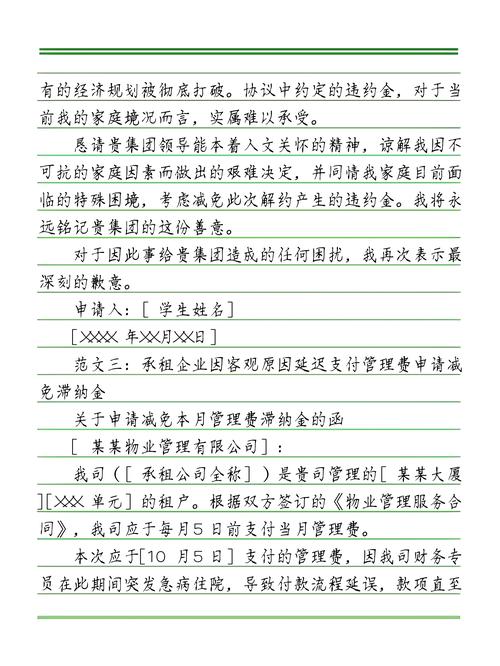 有的经济规划被彻底打破。协议中约定的违约金，对于当
前我的家庭境况而言，实属难以承受。
恳请贵集团领导能本着人文关怀的精神，谅解我因不
可抗的家庭因素而做出的艰难决定，并同情我家庭目前面
临的特殊困境，考虑减免此次解约产生的违约金。我将永
远铭记贵集团的这份善意。
对于因此事给贵集团造成的任何困扰，我再次表示最
深刻的歉意。
申请人：[ 学生姓名]
[XXXX 年XX月XX日]
范文三：承租企业因客观原因延迟支付管理费申请减
免滞纳金
关于申请减免本月管理费滞纳金的函
[ 某某物业管理有限公司]：
我司（[ 承租公司全称] ）是贵司管理的[ 某某大厦
][XXX 单元] 的租户。根据双方签订的《物业管理服务合
同》，我司应于每月5 日前支付当月管理费。
本次应于[10 月5日] 支付的管理费，因我司财务专
员在此期间突发急病住院，导致付款流程延误，款项直至